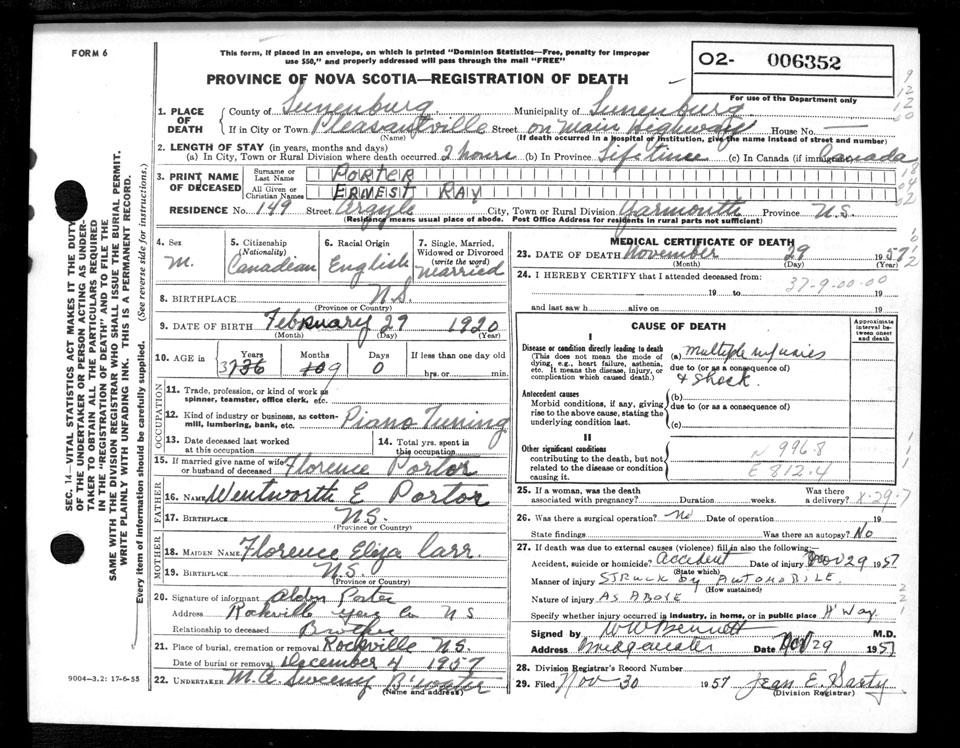 FORM 6
This form, if placed in an envelope, on which is printed "Dominion Statistics—Free, penalty for improper
use $50," and properly addressed will pass through the mail "FREE"
PROVINCE OF NOVA SCOTIA—REGISTRATION OF DEATH
O2- 006352
For use of the Department only
1. PLACE OF DEATH
County of Lunenburg Municipality of Lunenburg
If in City or Town Pleasantville Street on Main Highway House No. —
(Name) (If death occurred in a hospital or institution, give the name instead of street and number)
2. LENGTH OF STAY (in years, months and days)
(a) In City, Town or Rural Division where death occurred 2 hours (b) In Province Lifetime (c) In Canada (if immigrant) Canada
3. PRINT NAME OF DECEASED
Surname or Last Name PORTER
All Given or Christian Names ERNEST RAY
RESIDENCE No. 149 Street Argyle City, Town or Rural Division Yarmouth Province N.S.
(Residency means usual place of abode. Post Office Address for residents in rural parts not sufficient)
4. Sex M.
5. Citizenship (Nationality) Canadian
6. Racial Origin English
7. Single, Married, Widowed or Divorced (write the word) Married
8. BIRTHPLACE N.S.
(Province or Country)
9. DATE OF BIRTH February 29 1920
(Month) (Day) (Year)
10. AGE in Years Months 9 Days 0 If less than one day old
hrs. or min.
OCCUPATION
11. Trade, profession, or kind of work as
spinner, teamster, office clerk, etc.
12. Kind of industry or business, as cotton-
mill, lumbering, bank, etc. Piano Tuning
13. Date deceased last worked
at this occupation
14. Total yrs. spent in
this occupation
15. If married give name of wife
or husband of deceased Florence Porter
FATHER
16. NAME Wentworth E Porter
17. BIRTHPLACE N.S.
(Province or Country)
MOTHER
18. MAIDEN NAME Florence Eliza Carr.
19. BIRTHPLACE N.S.
(Province or Country)
20. Signature of informant Alden Porter
Address Rockville Yar Co N S
Relationship to deceased Brother
21. Place of burial, cremation or removal Rockville N.S.
Date of burial or removal December 4 1957
22. UNDERTAKER M.A. Sweeny B'water
(Name and address)
9004—3.2: 17-6-55
MEDICAL CERTIFICATE OF DEATH
23. DATE OF DEATH November 29 1957
(Month) (Day) (Year)
24. I HEREBY CERTIFY that I attended deceased from:
19 to 19
37-9-00-00
and last saw h alive on 19
CAUSE OF DEATH
Approximate interval between onset and death
I
Disease or condition directly leading to death
(This does not mean the mode of
dying, e.g., heart failure, asthenia,
etc. It means the disease, injury, or
complication which caused death.)
(a) Multiple injuries
due to (or as a consequence of)
& Shock.
Antecedent causes
Morbid conditions, if any, giving
rise to the above cause, stating the
underlying condition last.
(b)
due to (or as a consequence of)
(c)
II
Other significant conditions
contributing to the death, but not
related to the disease or condition
causing it.
N 996.8
E 812.4
25. If a woman, was the death
associated with pregnancy? Duration weeks. Was there
a delivery? X-29-7
26. Was there a surgical operation? No Date of operation 19
State findings Was there an autopsy? No
27. If death was due to external causes (violence) fill in also the following:
Accident, suicide or homicide? Accident Date of injury Nov 29 1957
(State which)
Manner of injury STRUCK by AUTOMOBILE.
(How sustained)
Nature of injury AS ABOVE
Specify whether injury occurred in industry, in home, or in public place H'Way.
Signed by W W Bennett M.D.
Address Bridgewater Date Nov 29 1957
28. Division Registrar's Record Number
29. Filed Nov 30 1957 Jean E.
(Division Registrar)
SEC. 14—VITAL STATISTICS ACT MAKES IT THE DUTY
OF THE UNDERTAKER OR PERSON ACTING AS UNDER-
TAKER TO OBTAIN ALL THE PARTICULARS REQUIRED
IN THE "REGISTRATION OF DEATH" AND TO FILE THE
SAME WITH THE DIVISION REGISTRAR WHO SHALL ISSUE THE BURIAL PERMIT.
WRITE PLAINLY WITH UNFADING INK. THIS IS A PERMANENT RECORD.
Every item of information should be carefully supplied. (See reverse side for instructions.)